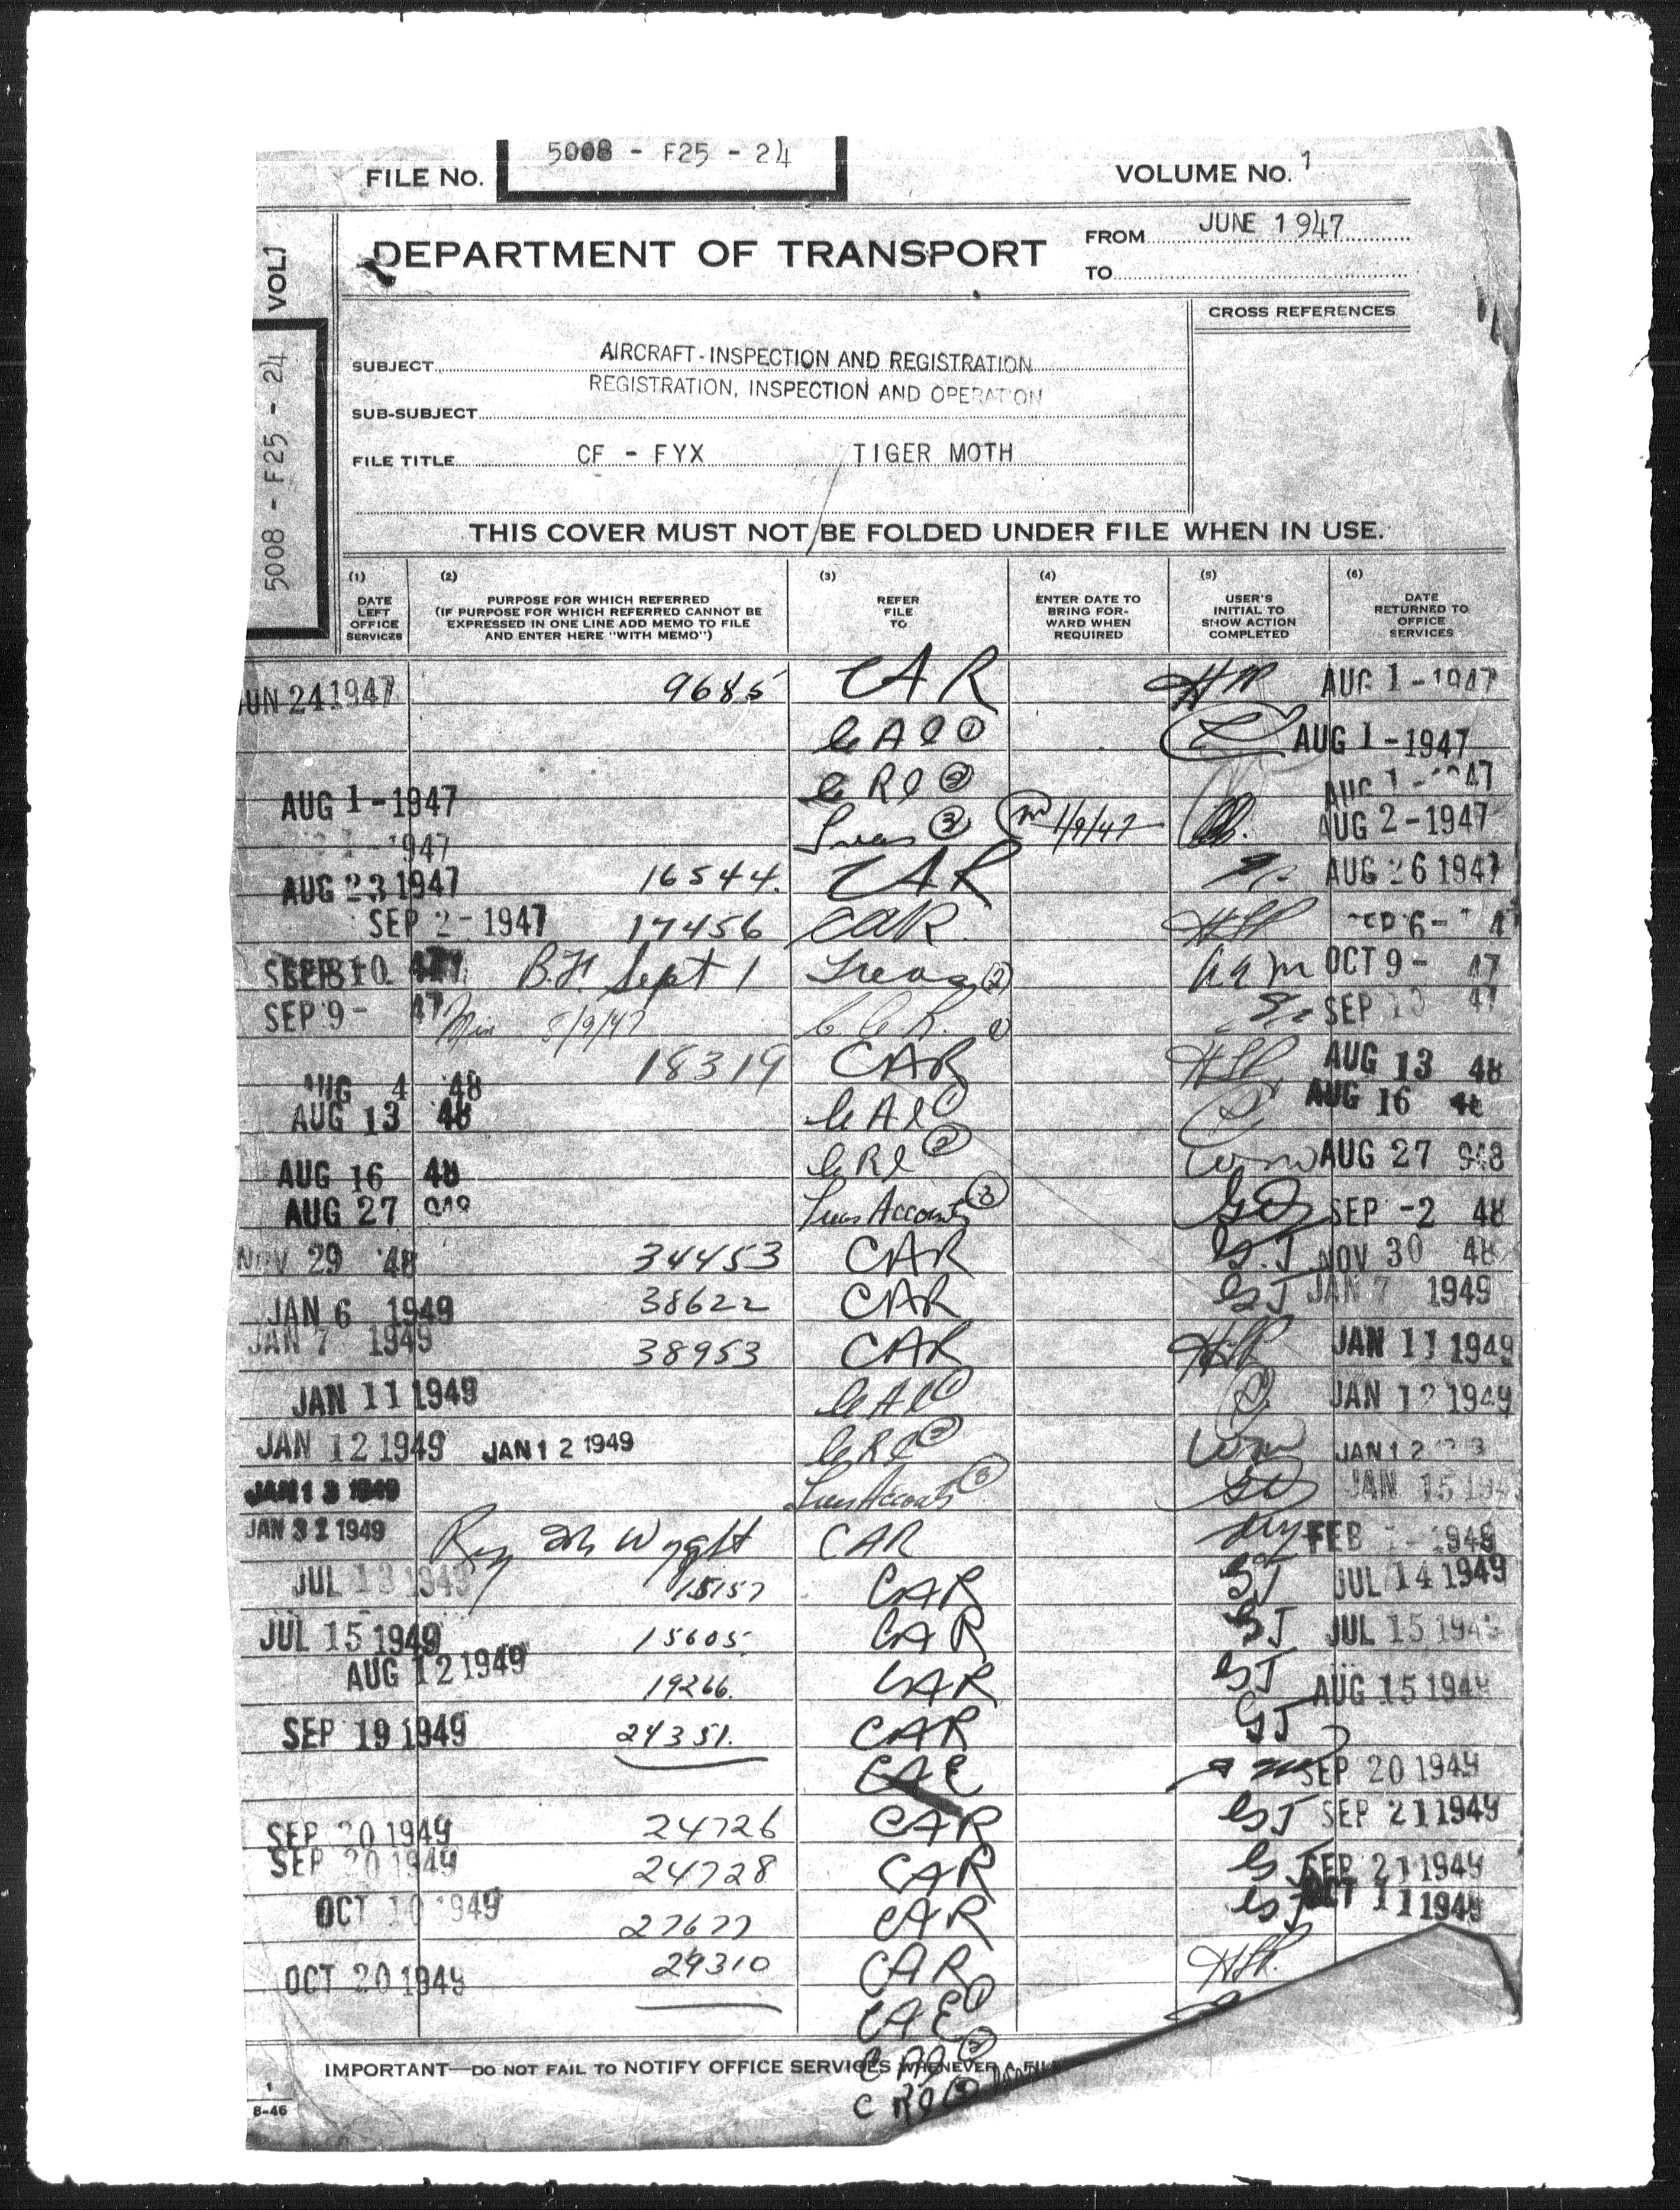 FILE No. 5008 - F25 - 24 VOLUME No. 1
VOL 1
5008 - F25 - 24
DEPARTMENT OF TRANSPORT
FROM JUNE 1947
TO
CROSS REFERENCES
SUBJECT AIRCRAFT - INSPECTION AND REGISTRATION
REGISTRATION, INSPECTION AND OPERATION
SUB-SUBJECT
FILE TITLE CF - FYX TIGER MOTH
THIS COVER MUST NOT BE FOLDED UNDER FILE WHEN IN USE.
(1) DATE LEFT OFFICE SERVICES
(2) PURPOSE FOR WHICH REFERRED (IF PURPOSE FOR WHICH REFERRED CANNOT BE EXPRESSED IN ONE LINE ADD MEMO TO FILE AND ENTER HERE "WITH MEMO")
(3) REFER FILE TO
(4) ENTER DATE TO BRING FORWARD WHEN REQUIRED
(5) USER'S INITIAL TO SHOW ACTION COMPLETED
(6) DATE RETURNED TO OFFICE SERVICES
JUN 24 1947 9685 CAR AUG 1 - 1947
CAI 1 AUG 1 - 1947
AUG 1 - 1947 CRI 2 AUG 1 - 47
1947 Treas 3 1/9/47 AUG 2 - 1947
AUG 23 1947 16544. CAR AUG 26 1947
SEP 2 - 1947 17456 CAR HSP SEP 6 - 47
B.F. Sept 1 Treas 2 OCT 9 - 47
SEP 9 - 47 8/9/47 CAR 1 SEP 10 47
AUG 4 48 18319 CAR HSP AUG 13 48
AUG 13 48 CAI 1 AUG 16 48
AUG 16 48 CRI 2 AUG 27 948
AUG 27 948 Treas Accounts 3 SEP - 2 48
NOV 29 48 34453 CAR GJ NOV 30 48
JAN 6 1949 38622 CAR GJ JAN 7 1949
JAN 7 1949 38953 CAR HSP JAN 11 1949
JAN 11 1949 CAI 1 JAN 12 1949
JAN 12 1949 JAN 12 1949 CRI 2 JAN 12
JAN 13 1949 Treas Accounts 3 JAN 15 194
JAN 31 1949 CAR FEB 1949
JUL 13 1949 15157 CAR GJ JUL 14 1949
JUL 15 1949 15605 CAR GJ JUL 15 1949
AUG 12 1949 19266. CAR GJ AUG 15 1949
SEP 19 1949 24351. CAR GJ
CAE SEP 20 1949
SEP 20 1949 24726 CAR GJ SEP 21 1949
SEP 20 1949 24728 CAR GJ SEP 21 1949
OCT 10 1949 27677 CAR GJ OCT 11 1949
OCT 20 1949 29310 CAR HSP.
CAE 1
CAI 2
IMPORTANT—DO NOT FAIL TO NOTIFY OFFICE SERVICES WHENEVER A FIL
CRI 3
8-46